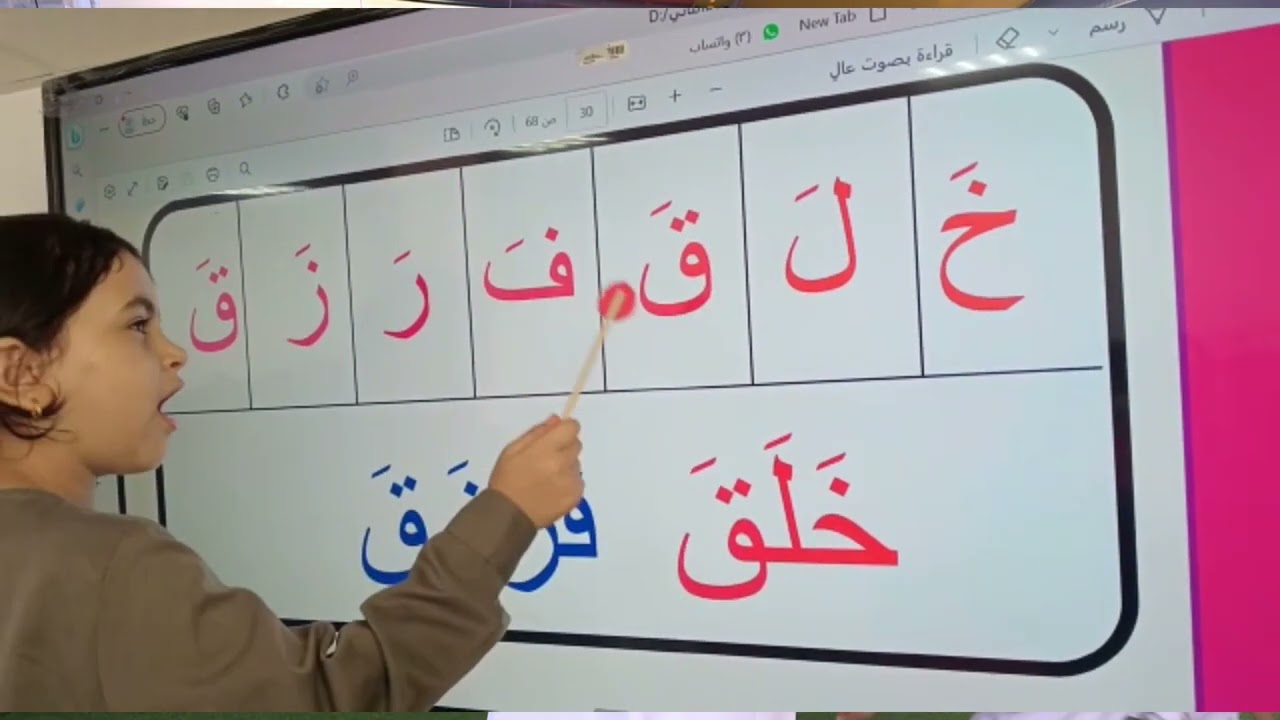 D:/
New Tab
(٣) واتساب
رسم
قراءة بصوت عالٍ
30 من 68
خَ لَ قَ فَ رَ زَ قَ
خَلَقَ